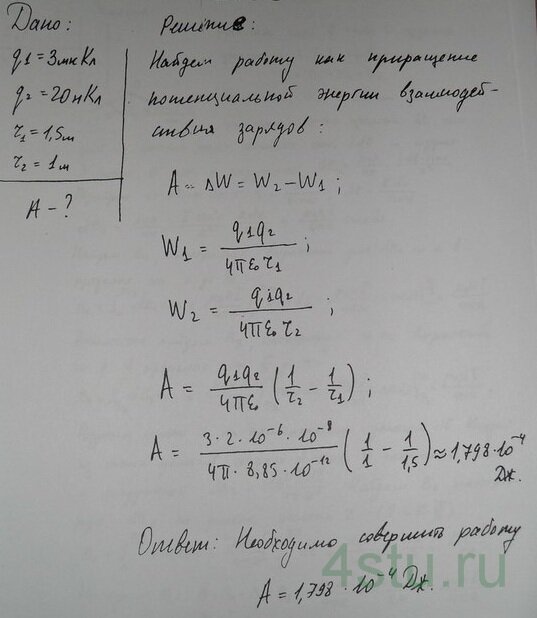 Дано:
q1 = 3мкКл
q2 = 20нКл
r1 = 1,5м
r2 = 1м
A - ?
Решение:
Найдем работу как приращение
потенциальной энергии взаимодей-
ствия зарядов:
A = ΔW = W2 - W1;
W1 = q1q2 / 4πε0r1;
W2 = q1q2 / 4πε0r2;
A = q1q2 / 4πε0 (1/r2 - 1/r1);
A = 3·2·10^-6·10^-8 / 4π·8,85·10^-12 (1/1 - 1/1,5) ≈ 1,798·10^-4
Дж.
Ответ: Необходимо совершить работу
A = 1,798·10^-4 Дж.
4stu.ru